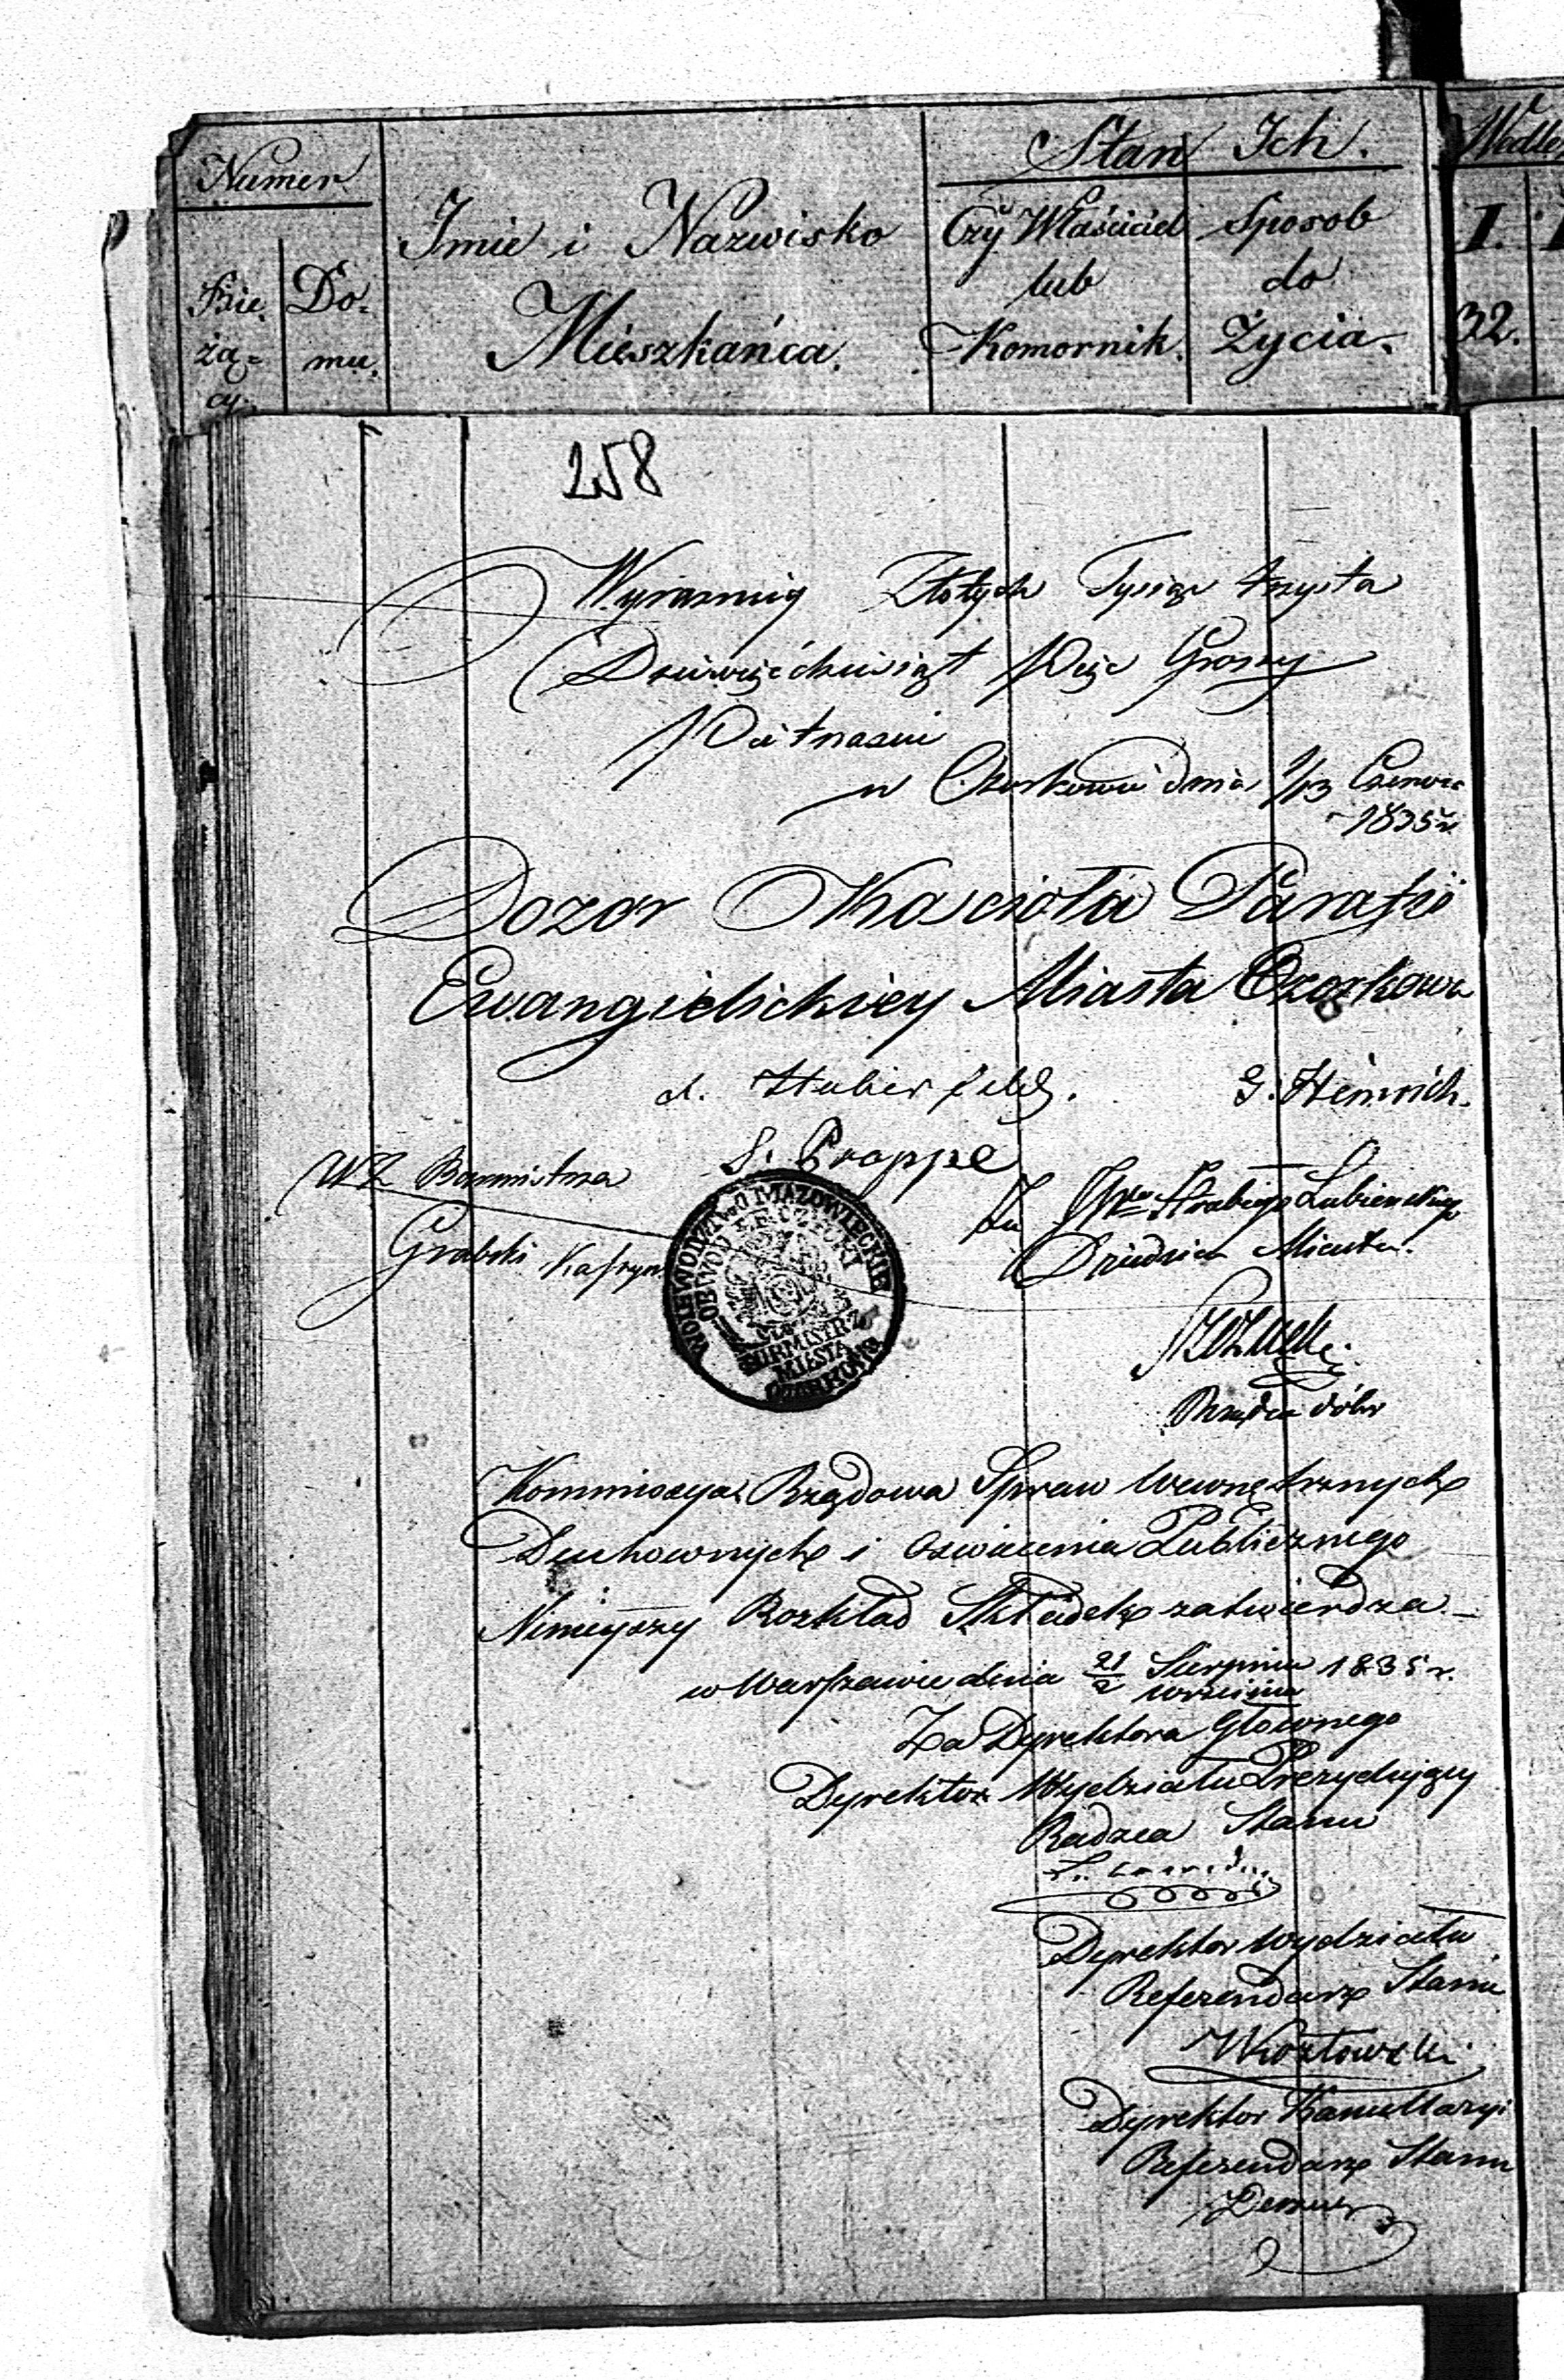 Numer
Bie-
żą=
cy.
Do=
mu.
Imie i Nazwisko
Mieszkańca.
Stan Ich.
Czy Właściciel
lub
Komornik.
Sposob
do
Życia.
Wedle
I.
32.
258
Wyrazniey Złotych Tysiąc trzysta
Dziewięćdziesiąt Pięc Groszy
w Ozorkowie dnia 1/13 Czerwca
1835 r.
Dozor Koscioła Parafii
Ewangielickiey Miasta Ozorkowa
G. Heinrich.
S. Prappe
WZ Burmistrza
Grabski
Za Hrabiego Lubienskiego
Dziedzica Miasta.
Rządca dóbr
WOIEWODZTWO MAZOWIECKIE
OBWOD ŁĘCZYCKI
BURMISTRZ
MIASTA
OZORKOWA
Kommissya Rządowa Spraw Wewnętrznych
Duchownych i Oswiecenia Publicznego
Ninieyszy Rozkład Składek zatwierdza
w Warszawie dnia 21/2 Sierpnia/Wrzesnia 1835 r.
Za Dyrektora Głownego
Dyrektor Wydziału Prezyduiący
Radzca Stanu
Dyrektor Wydziału
Referendarz Stanu
Kozłowski
Dyrektor Kancellaryi
Referendarz Stanu